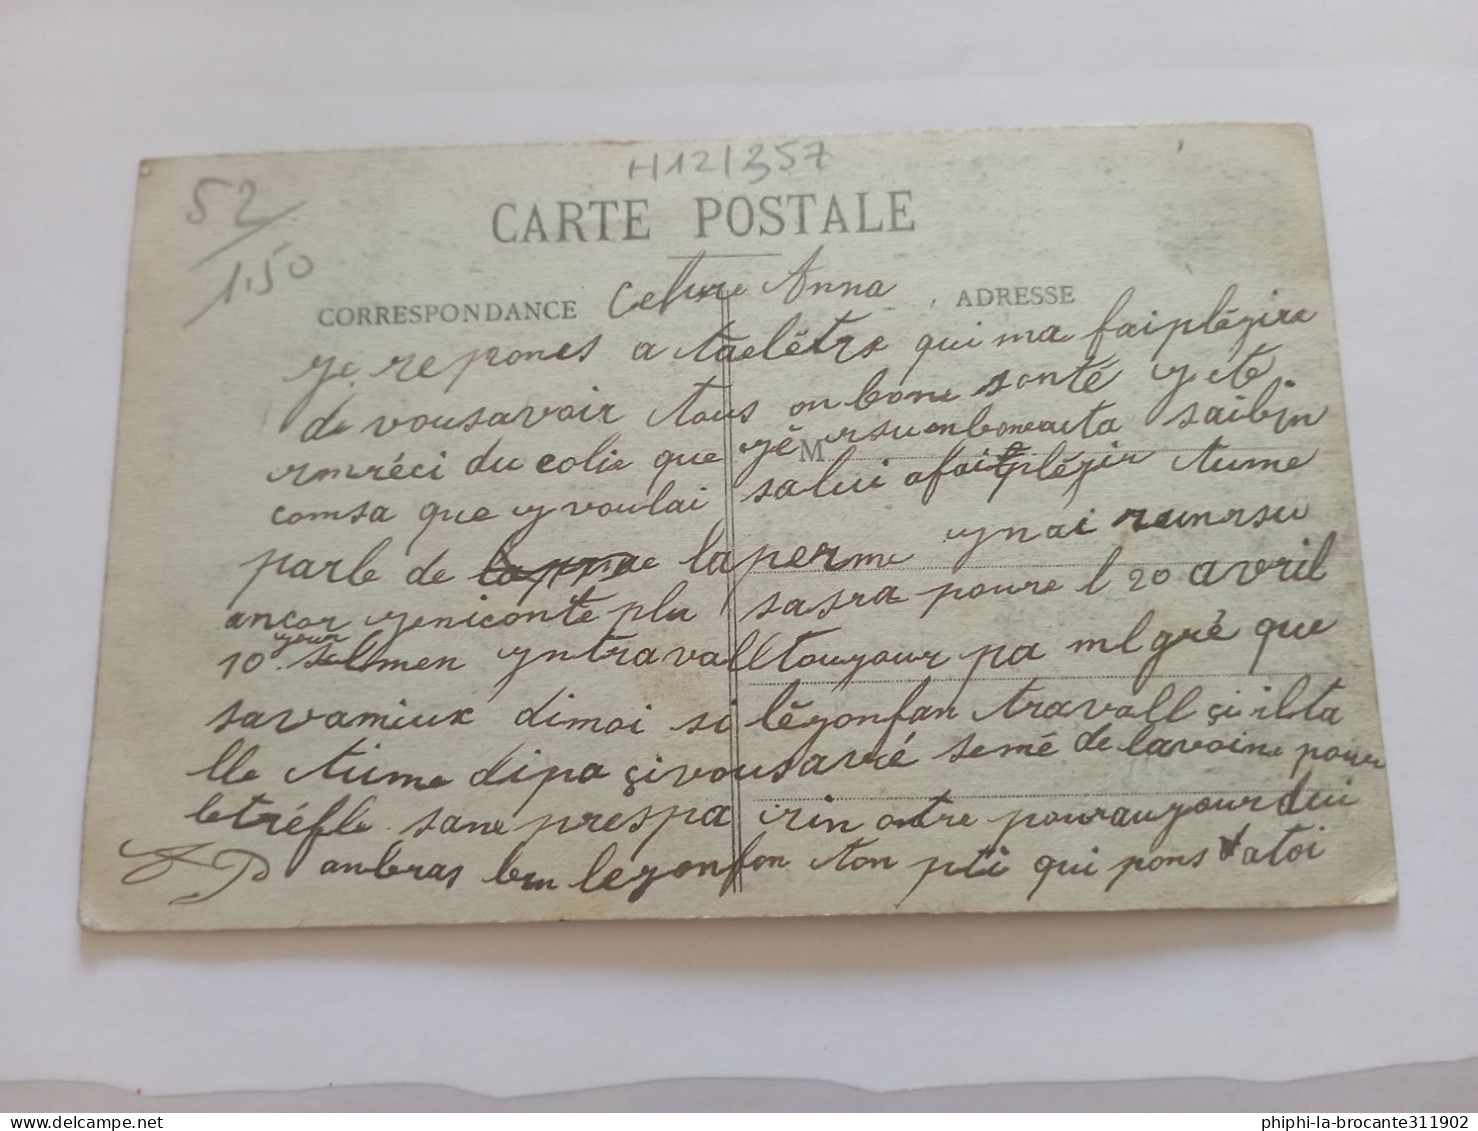 H12/357
52
1.50
CARTE POSTALE
CORRESPONDANCE
ADRESSE
Anna
ye repones a taelêtre qui ma faiplégire
de vousavoir tous on bone sonté y te
rmréci du colie que yé rsu on boneauta saibin
M
comsa que y voulai salui a fait plégir tume
parle de laperme ynai reunrsu
ancor yeniconte plu sasra poure l 20 avril
10 your selmen yntravall touyour pa mlgré que
savamieux dimoi si léyonfan travall çi il ta
lle tume dipa çivousavié semé de lavoine pour
letréfle sane prespa rin ontre pourauyourdui
AP anbras bin leyonfon ton pti qui pons a toi
phiphi-la-brocante311902